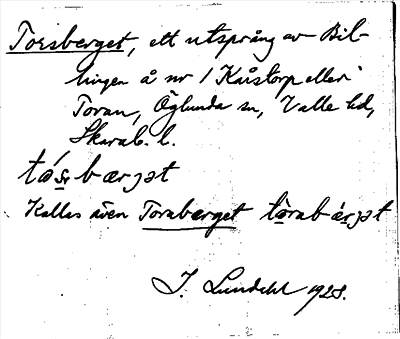 Torsberget, ett utsprång av Bil-
lingen å nr 1 Kåstorp eller
Toran, Öglunda sn, Valle hd,
Skarab. l.
tǻs̠bærjət
Kallas även Toraberget tò̠rabǽrjət
J. Lundahl 1928.